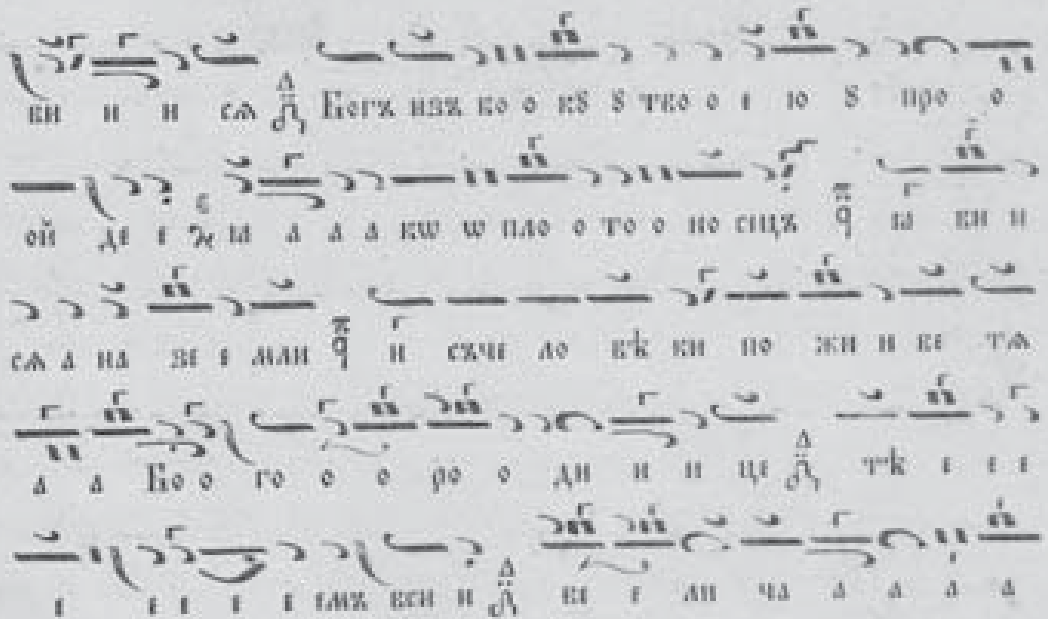 ви и и сѧ Богъ изъ во о кꙋ ꙋ тво о е ю ꙋ про о
ой де е ꙗ а а а кѡ ѡ пло о то о но сицъ ꙗ ви и
сѧ а на зе е мли и съче ло вѣ ки по жи и ве тѧ
а а Бо о го о о ро о ди и и це тѣ е е е
е е е е е емъ вси и ве е ли ча а а а а